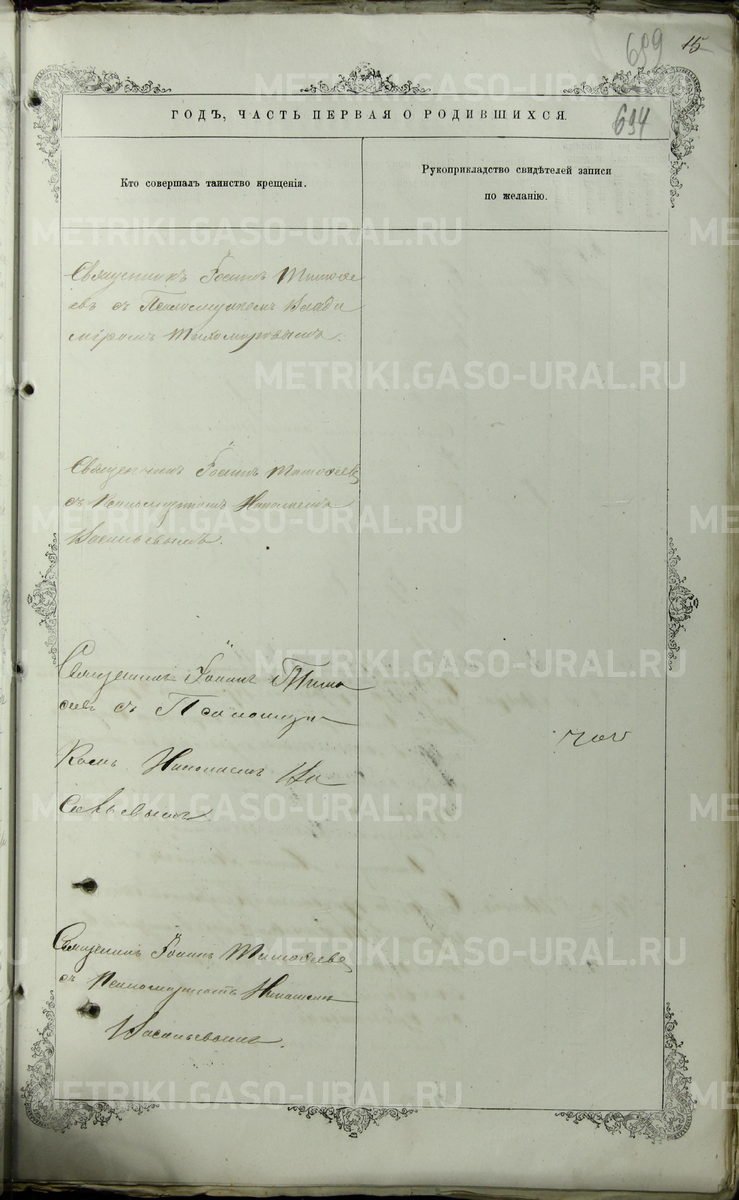 689 15
694
ГОДЪ, ЧАСТЬ ПЕРВАЯ О РОДИВШИХСЯ.
Кто совершалъ таинство крещенія.
Рукоприкладство свидѣтелей записи
по желанію.
Священникъ Іоаннъ Тимоѳе
евъ съ Псаломщикомъ Влади
міромъ Тихомировымъ.
Священникъ Іоаннъ Тимоѳеевъ
съ Псаломщикомъ Николаемъ
Васильевымъ.
Священникъ Іоаннъ Тимо
ѳеевъ съ Псаломщи
комъ Николаемъ Ва
сильевымъ.
Священникъ Іоаннъ Тимоѳеевъ
съ Псаломщикомъ Николаемъ
Васильевымъ.
METRIKI.GASO-URAL.RU